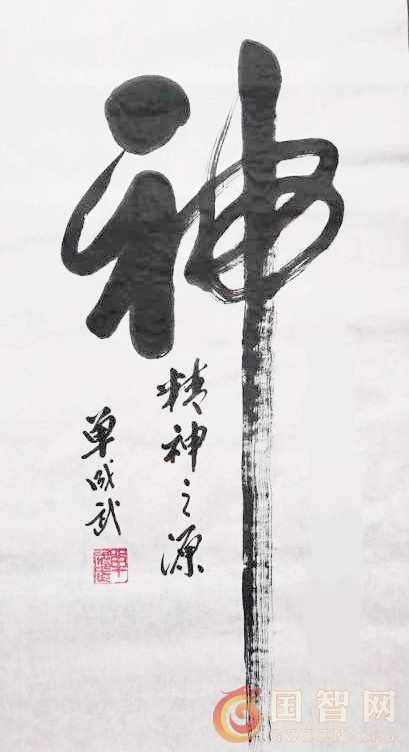 神
精神之源
单成武
国智网